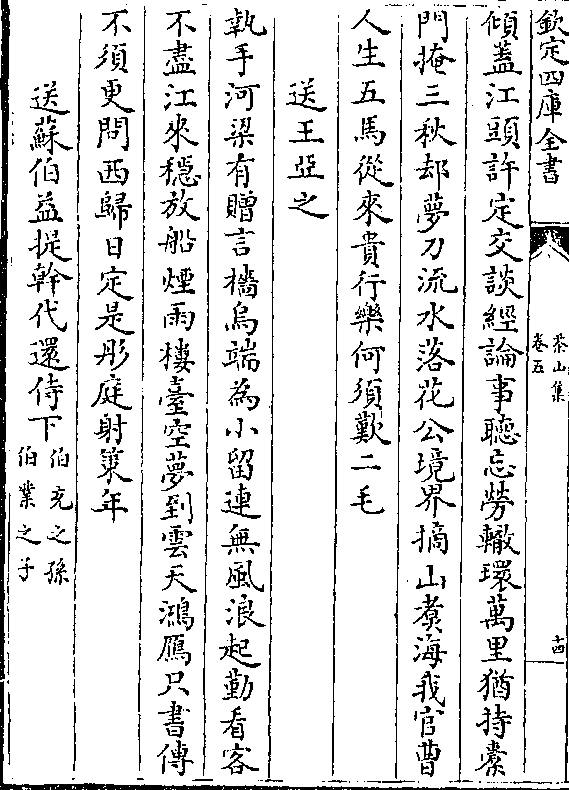 欽定四庫全書
茶山集
卷五
十四
傾蓋江頭許定交談經論事聽忘勞轍環萬里猶持橐
門掩三秋却夢刀流水落花公境界摘山煑海我官曹
人生五馬從來貴行樂何須歎二毛
送王亞之
執手河梁有贈言檣烏端為小留連無風浪起勤看客
不盡江來穩放船煙雨樓臺空夢到雲天鴻鴈只書傳
不須更問西歸日定是彤庭射策年
送蘇伯益提幹代還侍下
伯充之孫
伯業之子